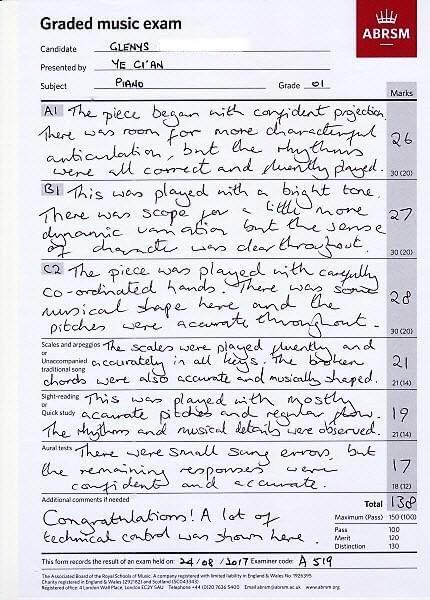 Graded music exam
ABRSM
Candidate GLENYS
Presented by YE CI'AN
Subject PIANO Grade 01
Marks
A1 The piece began with confident projection.
There was room for more characterful
articulation, but the rhythms
were all correct and fluently played.
26
30 (20)
B1 This was played with a bright tone.
There was scope for a little more
dynamic variation but the sense
of character was clear throughout.
27
30 (20)
C2 The piece was played with carefully
co-ordinated hands. There was some
musical shape here and the
pitches were accurate throughout.
28
30 (20)
Scales and arpeggios
or
Unaccompanied
traditional song
The scales were played fluently and
accurately in all keys. The broken
chords were also accurate and musically shaped.
21
21 (14)
Sight-reading
or
Quick study
This was played with mostly
accurate pitches and regular flow.
The rhythms and musical details were observed.
19
21 (14)
Aural tests
There were small sung errors, but
the remaining responses were
confident and accurate.
17
18 (12)
Additional comments if needed
Congratulations! A lot of
technical control was shown here.
Total 138
Maximum (Pass) 150 (100)
Pass 100
Merit 120
Distinction 130
This form records the result of an exam held on: 24/08/2017 Examiner code: A 519
The Associated Board of the Royal Schools of Music. A company registered with limited liability in England & Wales No 1926395
Charity registered in England & Wales (292182) and Scotland (SC043343)
Registered office: 4 London Wall Place, London EC2Y 5AU Telephone +44 (0)20 7636 5400 www.abrsm.org